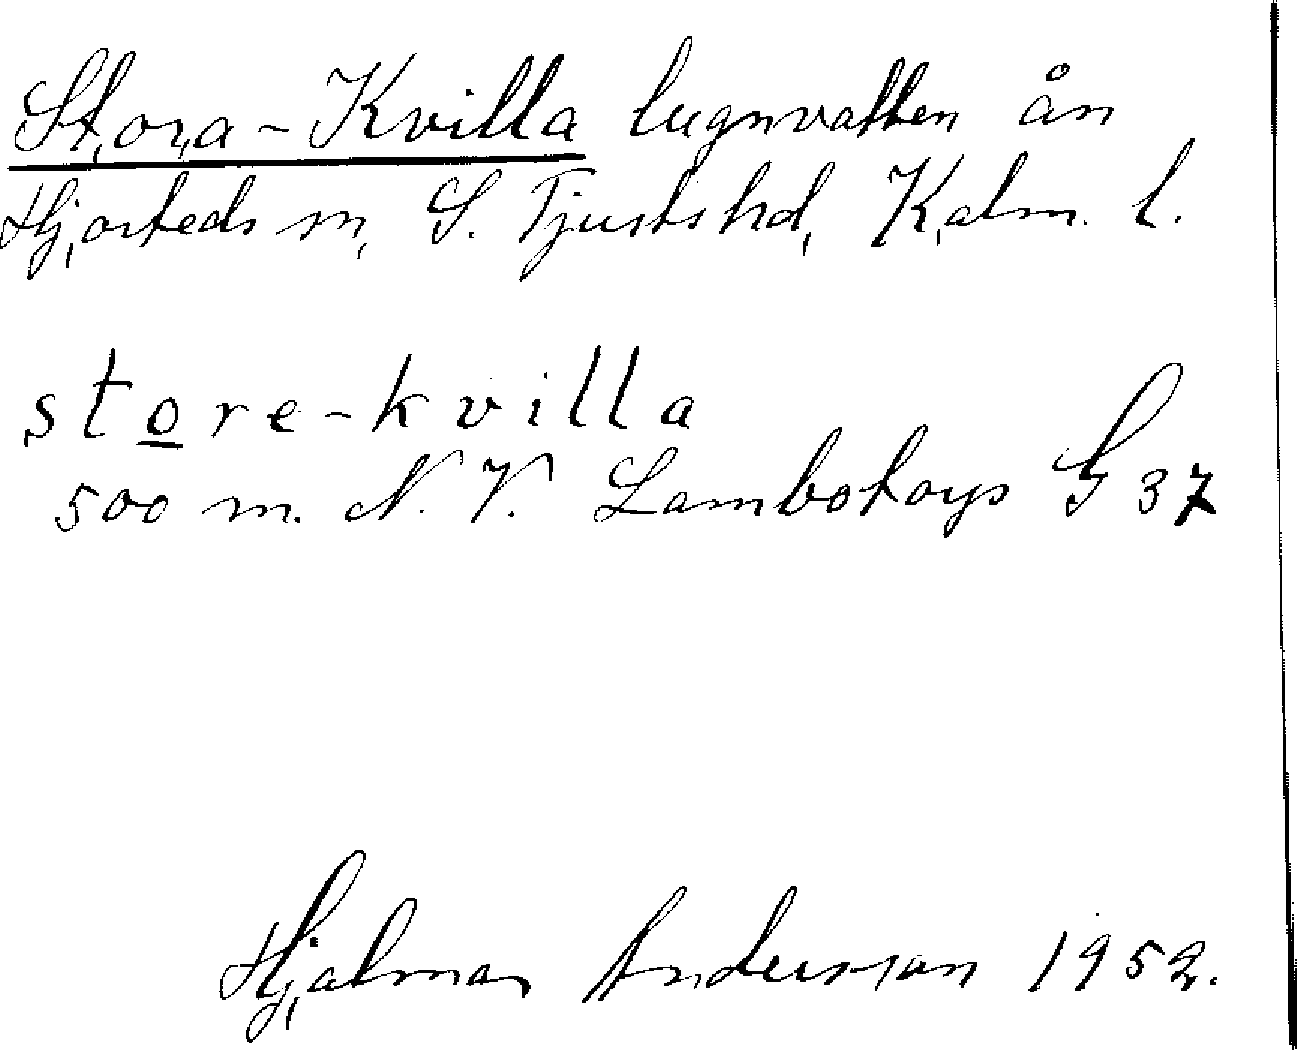 Stora-Kvilla lugnvatten ån
Hjorteds sn, S. Tjusts hd, Kalm. l.
store-kvilla
500 m. N. V. Lambohovs G 37
Hjalmar Anderson 1952.